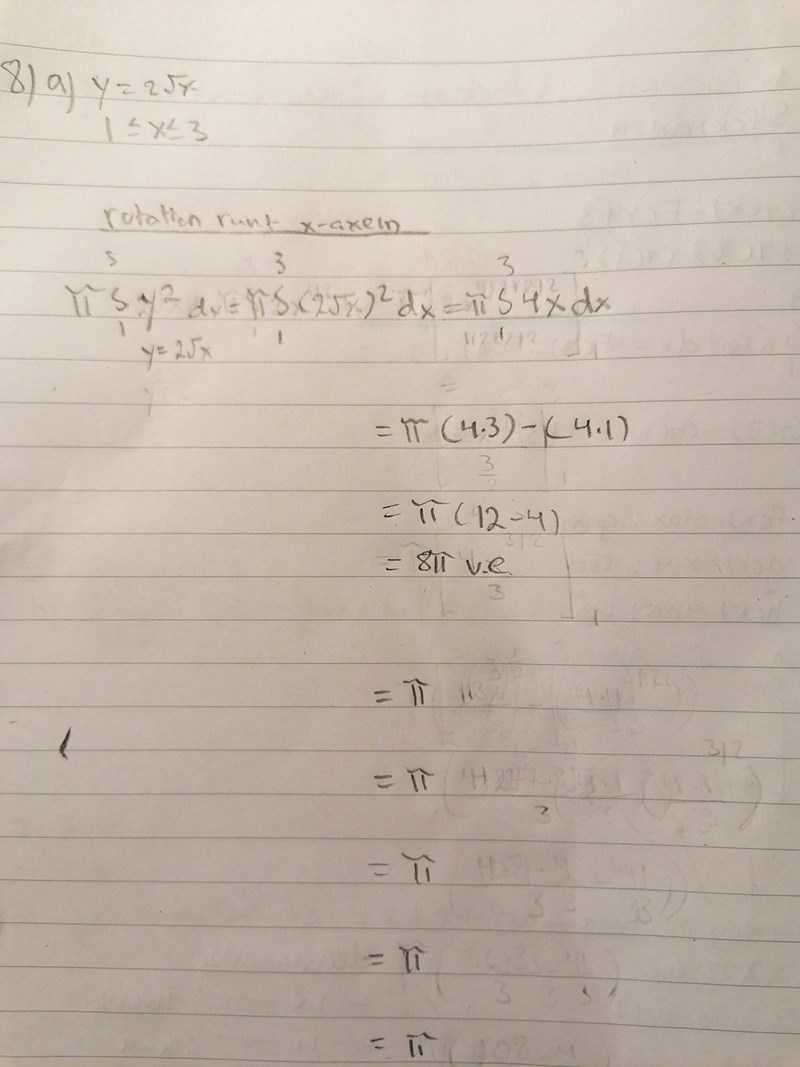 8) a) y = 2√x
1 ≤ x ≤ 3
rotation runt x-axeln
π ∫₁³ y² dx = π ∫₁³ (2√x)² dx = π ∫₁³ 4x dx
y = 2√x
= π (4·3) - (4·1)
= π (12-4)
= 8π v.e
= π
= π
= π
= π
= π